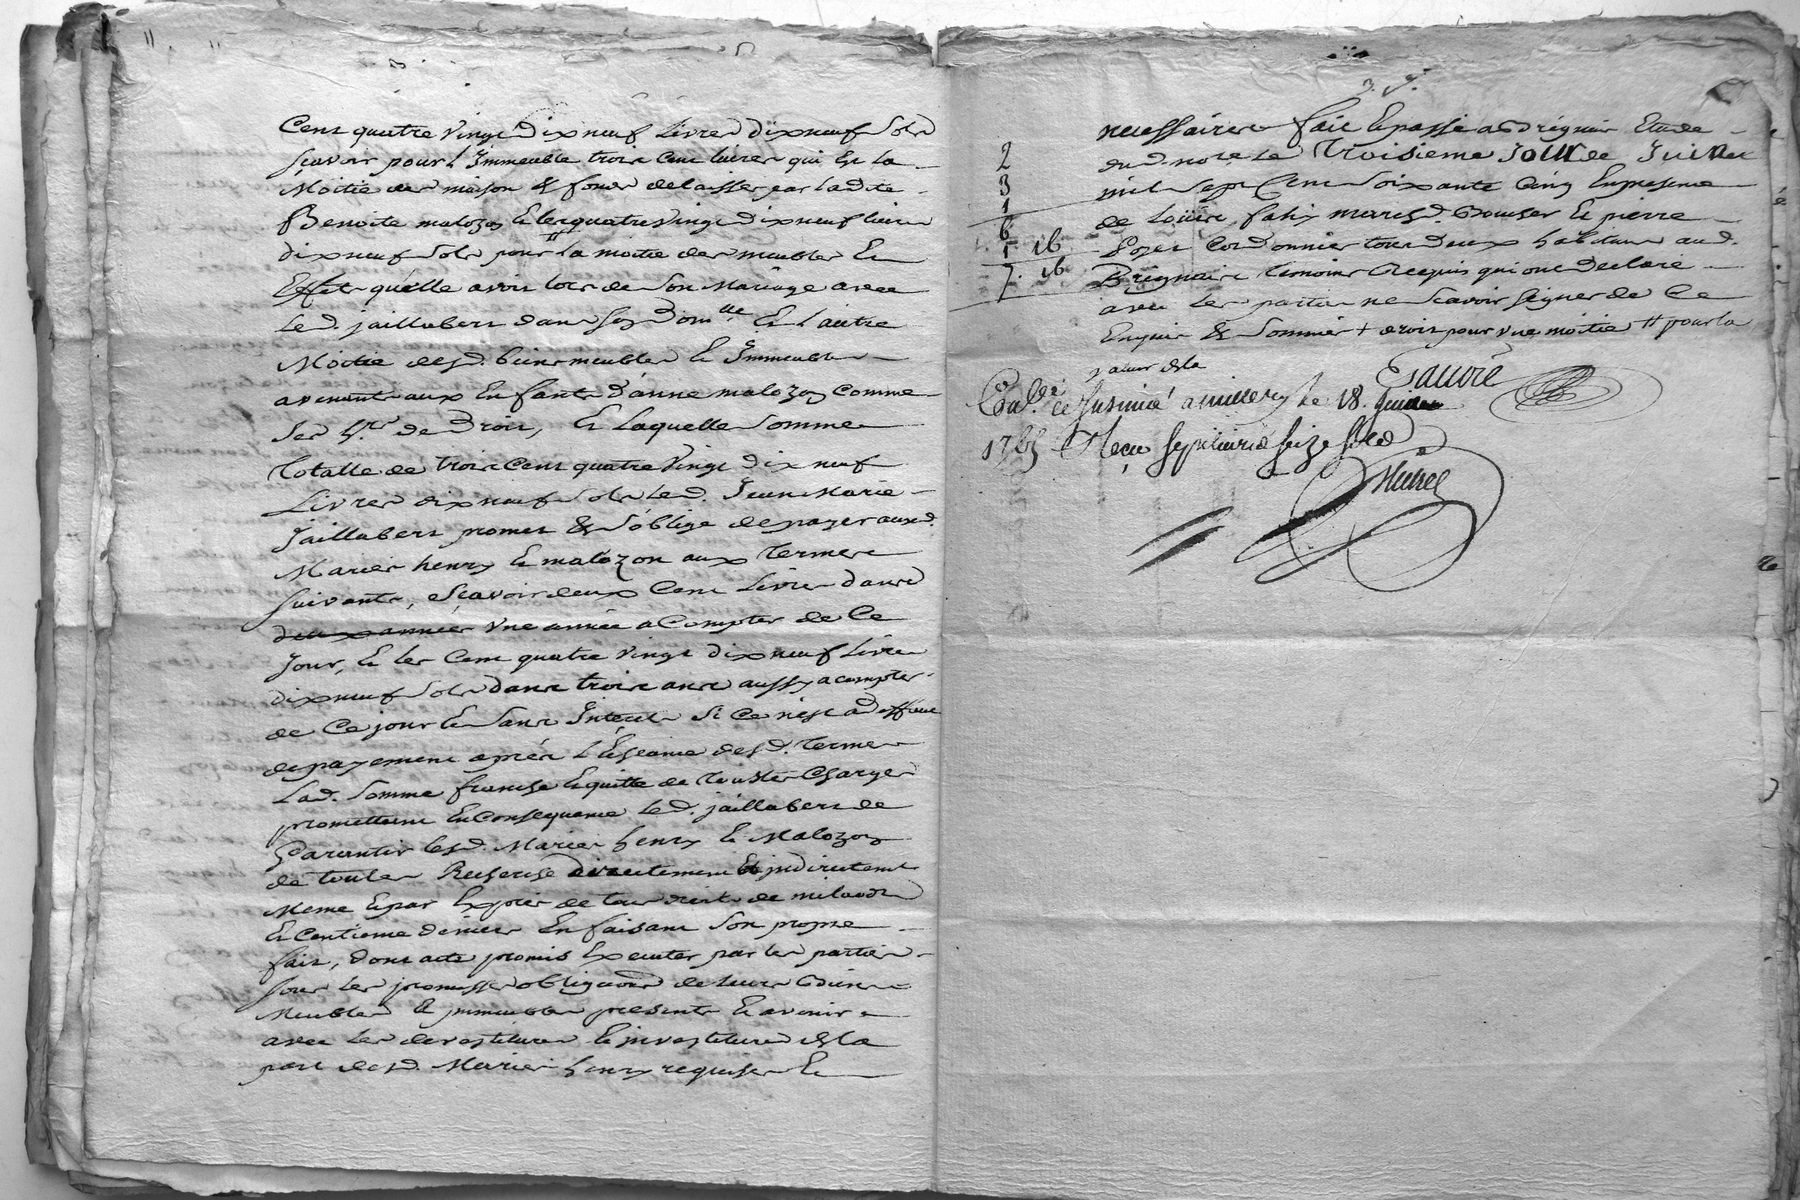 Cent quatre vingt dix neuf Livres dix neuf Sols
Scavoir pour l'Immeuble trois Cent livres qui Est la
Moitié des maison & fonds delaissés par ladite
Benoite malozon & les quatre vingt dix neuf livres
dix neuf Sols pour la moitié des meubles Et
Effets qu'elle avoit lors de Son Mariage avec
led. jaillabert dans Son Dom.lle Et l'autre
Moitié desd. biens meubles Et Immeubles
avenants aux Enfants d'anne malozon Comme
Ses h.rs de Droit, Et laquelle Somme
Totalle de trois Cent quatre vingt dix neuf
Livres dix neuf Sols led. Jean Marie
Jaillabert promet & S'oblige de payer auxd.
Mariés henry Et malozon aux Termes
Suivants, Scavoir deux Cent Livres dans
deux années une année a Compter de Ce
Jour, Et les Cent quatre vingt dix neuf Livres
dix neuf Sols dans trois ans aussy a compter
de Ce jour Et Sans Interet Si Ce n'est a deffaut
de payement après l'Echeance desd. Termes
Lad. Somme franche Et quitte de Toutes Charges
promettant En Consequence led. jaillabert de
Garentir lesd. Mariés henry Et Malozon
de toutes Recherche directement Et indirectement
Meme Et par Exprès de tous droits de milaods
Et Centieme denier En faisant Son propre
fait, dont acte promis Executer par les parties
Sous les promesses obligations de leurs Biens
Meubles & jmmeubles presents Et avenir
avec les devestitures Et investitures de la
part desd. Mariés henry requises Et
3. 9.
necessaires fait Et passé a Brignais Etude
dud. not.re Le Troisieme Jour de Juin
mil Sept Cent Soixante Cinq En presence
de Loüis fahy march.d Boucher Et pierre
Cordonnier tous deux habitant aud.
Brignais Temoins Requis qui ont Declaré
avec les parties ne Scavoir Signer de Ce
Enquis & Sommés + droits pour une moitié # pour la
valeur de la
2
3
1
6
1 16
7. 16
Con.llé et Insinué a le 18. Juin
1765 Reçu Sept livres Seize Sols